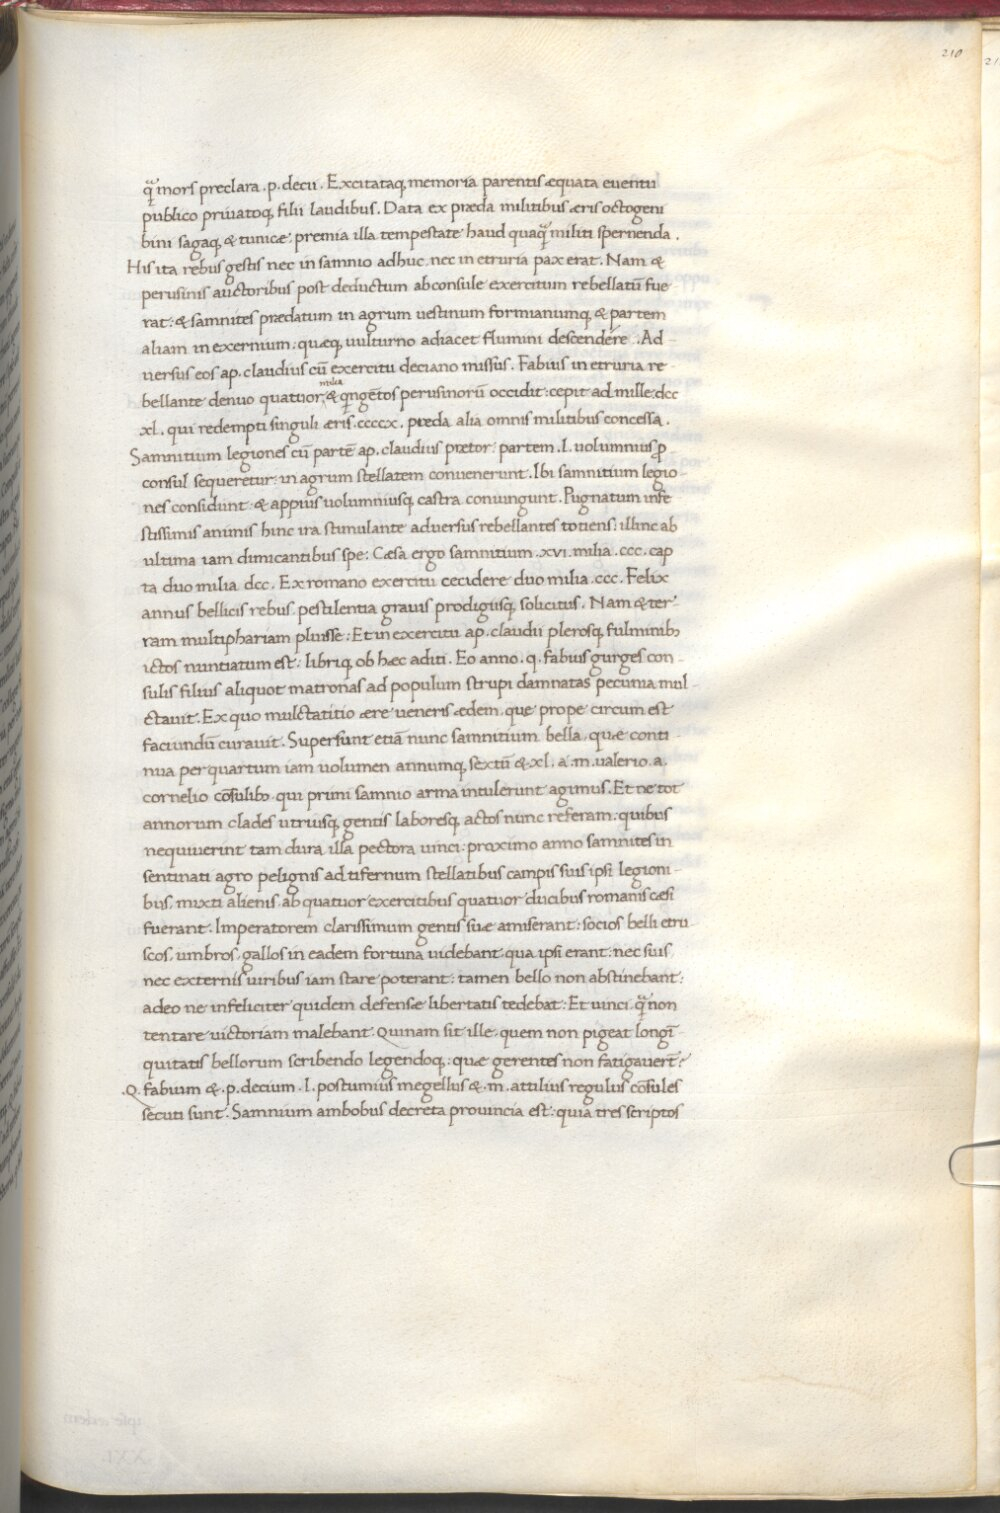 210
qᷓ mors preclara .p. decii. Excitataq; memoria parentis æquata euentu
publico priuatoq; filii laudibus. Data ex præda militibus æris octogeni
bini sagaq; & tunicæ: premia illa tempestate haud quaqᷓ militi spernenda.
His ita rebus gestis nec in samnio adhuc. nec in etruria pax erat. Nam &
perusinis auctoribus post deductum ab consule exercitum rebellatū fue
rat: & samnites prædatum in agrum uestinum formianumq; & partem
aliam in exernium: quæq; uulturno adiacet flumini descendere. Ad-
uersus eos ap. claudius cū exercitu deciano missus. Fabius in etruria re
milia
bellante denuo quatuor, & qngētos perusinorū occidit: cepit ad mille: dcc
xl. qui redempti singuli æris. ccccx. præda alia omnis militibus concessa.
Samnitium legiones cū partē ap. claudius prætor: partem .l. uolumnius ꝓ
consul sequeretur: in agrum stellatem conuenerunt. Ibi samnitium legio-
nes considunt: & appius uolumniusq; castra coniungunt. Pugnatum infe
stissimis animis hinc ira stimulante aduersus rebellantes totiens: illinc ab
ultima iam dimicantibus spe: Cæsa ergo samnitium .xvi. milia .ccc. cap
ta duo milia dcc. Ex romano exercitu cecidere duo milia .ccc. Felix
annus bellicis rebus. pestilentia grauis prodigiisq; solicitus. Nam & ter-
ram multiphariam pluisse: Et in exercitu ap. claudii plerosq; fulminib;
ictos nuntiatum est: libriq; ob hæc aditi. Eo anno .q. fabius gurges con-
sulis filius aliquot matronas ad populum strupi damnatas pecunia mul-
ctauit. Ex quo mulctatitio ære ueneris ædem. que prope circum est
faciundū curauit. Supersunt etiā nunc samnitium bella. quæ conti-
nua per quartum iam uolumen annumq; sextū & .xl. a .m. ualerio .a.
cornelio cōsulib; qui primi samnio arma intulerunt agimus. Et ne tot
annorum clades utriusq; gentis laboresq; actos nunc referam: quibus
nequiuerint tam dura illa pectora uinci: proximo anno samnites in
sentinati agro pelignis ad tifernum stellatibus campis suis ipsi legioni-
bus, mixti alienis. ab quatuor exercitibus quatuor ducibus romanis cæsi
fuerant. Imperatorem clarissimum gentis suæ amiserant: socios belli etru
scos, umbros, gallos in eadem fortuna uidebant. qua ipsi erant: nec suis
nec externis uiribus iam stare poterant: tamen bello non abstinebant:
adeo ne infeliciter quidem defensæ libertatis tedebat: Et uinci qᷓ non
tentare uictoriam malebant. Quinam sit ille. quem non pigeat longī
quitatis bellorum scribendo legendoq;: quæ gerentes non fatigauerт̄?
.Q. fabium & .p. decium .l. postumius megellus & .m. attilius regulus cōsules
secuti sunt. Samnium ambobus decreta prouincia est: quia tres scriptos